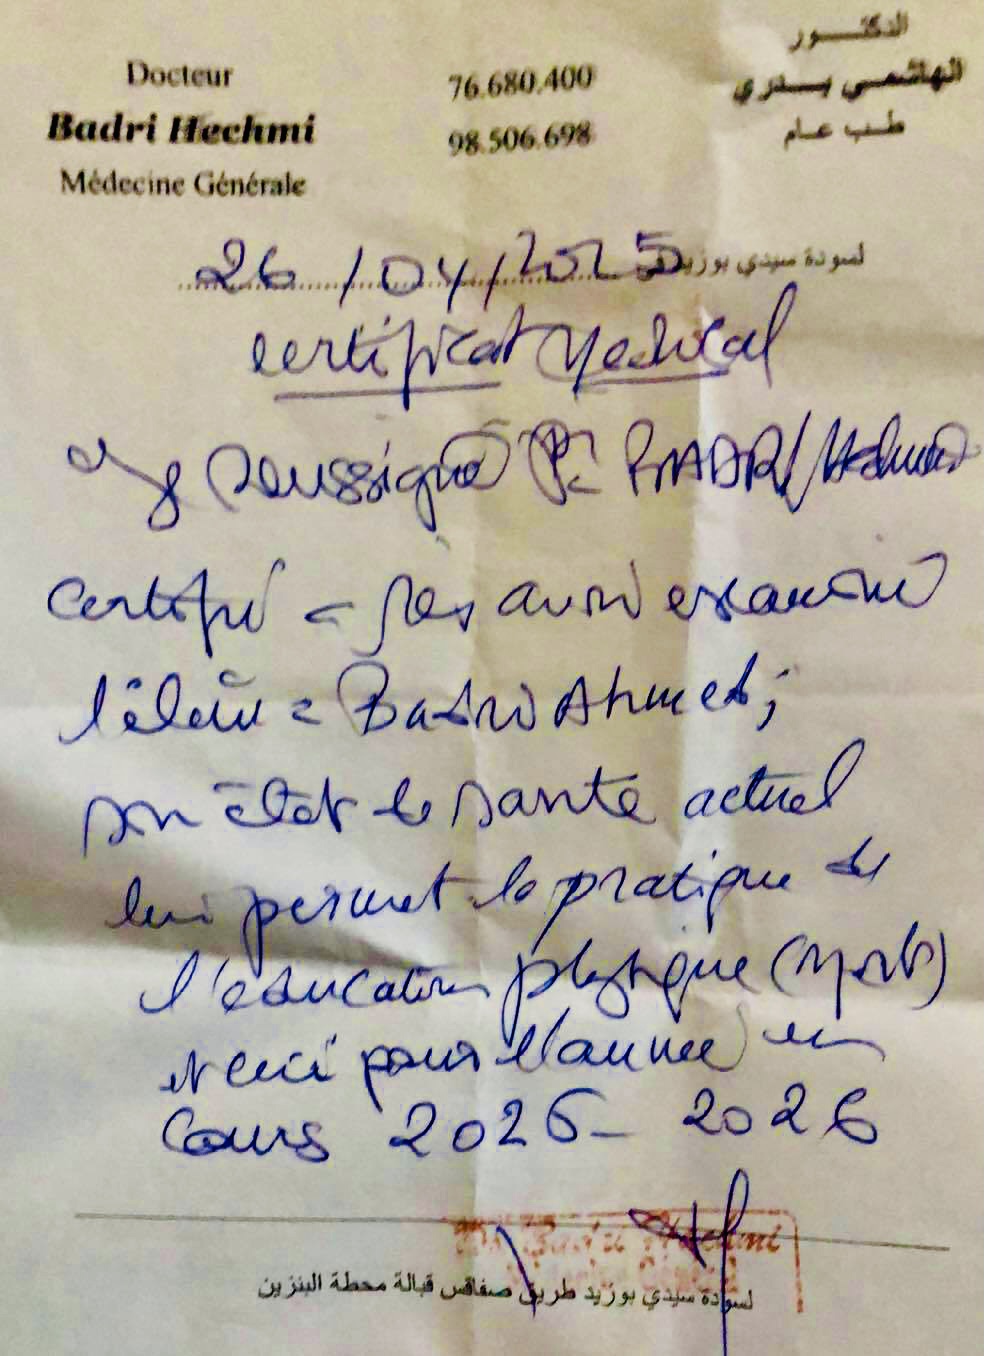 Docteur
Badri Hechmi
Médecine Générale
76.680.400
98.506.698
الدكتور
الهاشمي بدري
طب عام
لسودة سيدي بوزيد في 26/04/2025
Certificat Medical
Je soussigné Dr BADRI Hechmi
Certifie avoir examiné
l'élève = Badri Ahmed;
son état de santé actuel
lui permet la pratique de
l'éducation physique (sport)
et ceci pour l'année en
Cours 2025-2026
Badri Hechmi
لسودة سيدي بوزيد طريق صفاقس قبالة محطة البنزين